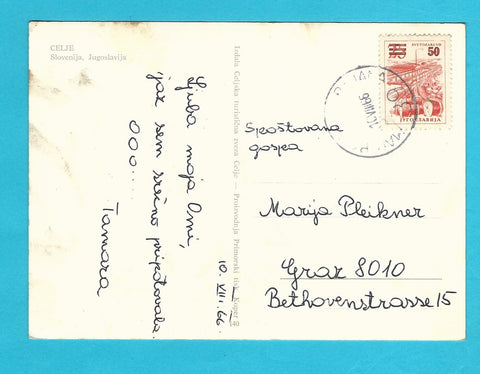 CELJE
Slovenija, Jugoslavija
Ljuba moja Omi,
jaz sem srečno pripotovala.
000...
Tamara
10. VIII. 66.
Izdala Celjska turistična zveza Celje — Proizvodnja Primorski tisk, Koper
40
50
JUGOSLAVIJA
Spoštovana
gospa
Marija Pleikner
Graz 8010
Bethovenstrasse 15